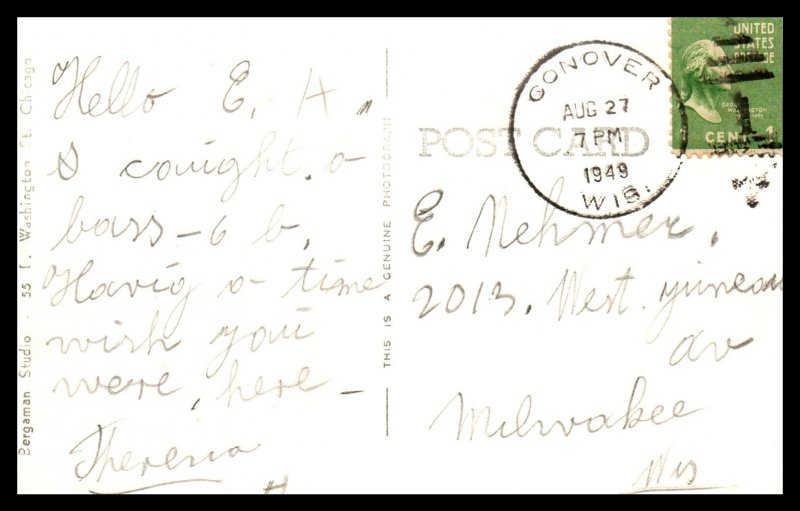 Hello E. H.
I cought. a
bass - 6 lb,
Havig a time
wish you
were, here -
Theresa
Bergaman Studio - 55 E. Washington St. Chicago
THIS IS A GENUINE PHOTOGRAPH
POST CARD
CONOVER
AUG 27
7 PM
1949
WIS.
UNITED
STATES
POSTAGE
GEORGE
WASHINGTON
1 CENT 1
E. Nehmer,
2013, West. yuneau
av
Milwakee
Wis